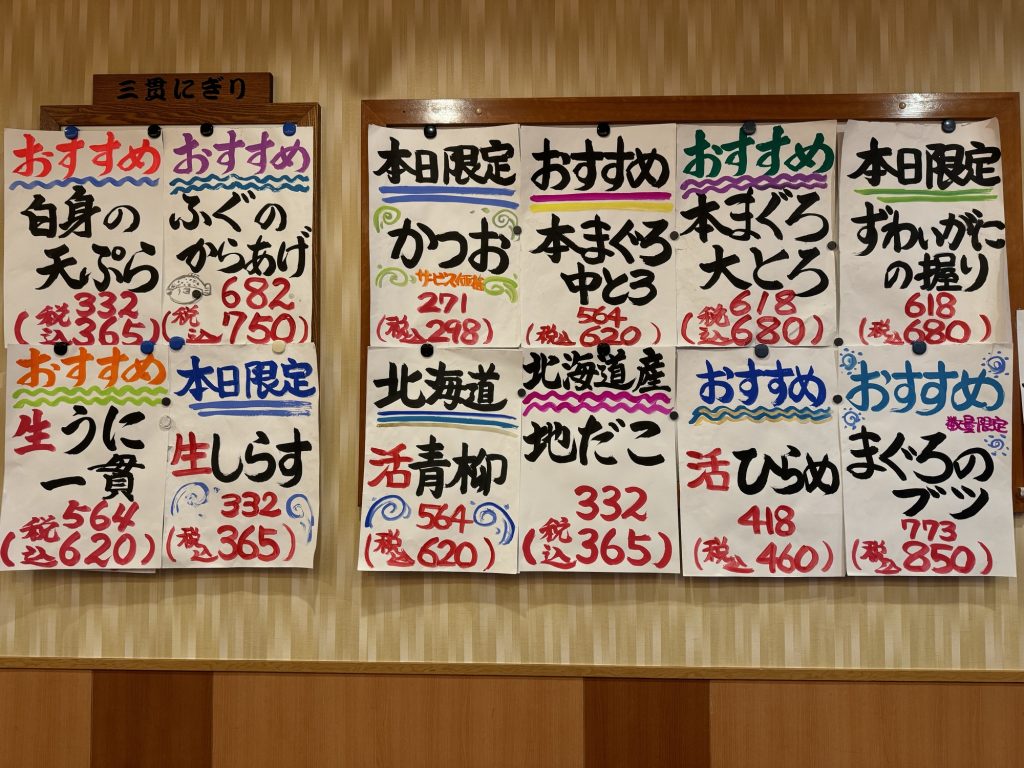 三貫にぎり
おすすめ
白身の
天ぷら
332
(税込365)
おすすめ
ふぐの
からあげ
682
(税込750)
本日限定
かつお
サービス価格
271
(税込298)
おすすめ
本まぐろ
中とろ
564
(税込620)
おすすめ
本まぐろ
大とろ
618
(税込680)
本日限定
ずわいがに
の握り
618
(税込680)
おすすめ
生うに
一貫
564
(税込620)
本日限定
生しらす
332
(税込365)
北海道
活青柳
564
(税込620)
北海道産
地だこ
332
(税込365)
おすすめ
活ひらめ
418
(税込460)
おすすめ
数量限定
まぐろの
ブツ
773
(税込850)